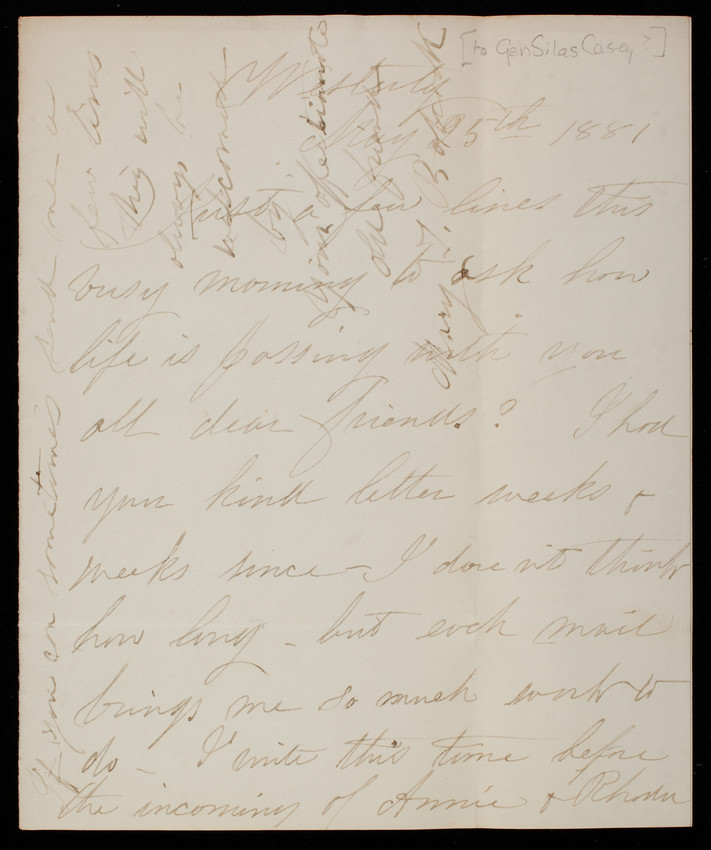 [to Gen Silas Casey?]
Westerly
May 25th 1881
Just a few lines this
busy morning to ask how
life is passing with you
all dear friends? I had
your kind letter weeks &
weeks since – I dare n't think
how long – but each mail
brings me so much work to
do – I write this time before
the incoming of Annie & Rhoda
If you can sometimes send me a
few lines
they will
always be
welcomed
by
Your affectionate
old friend
Mary